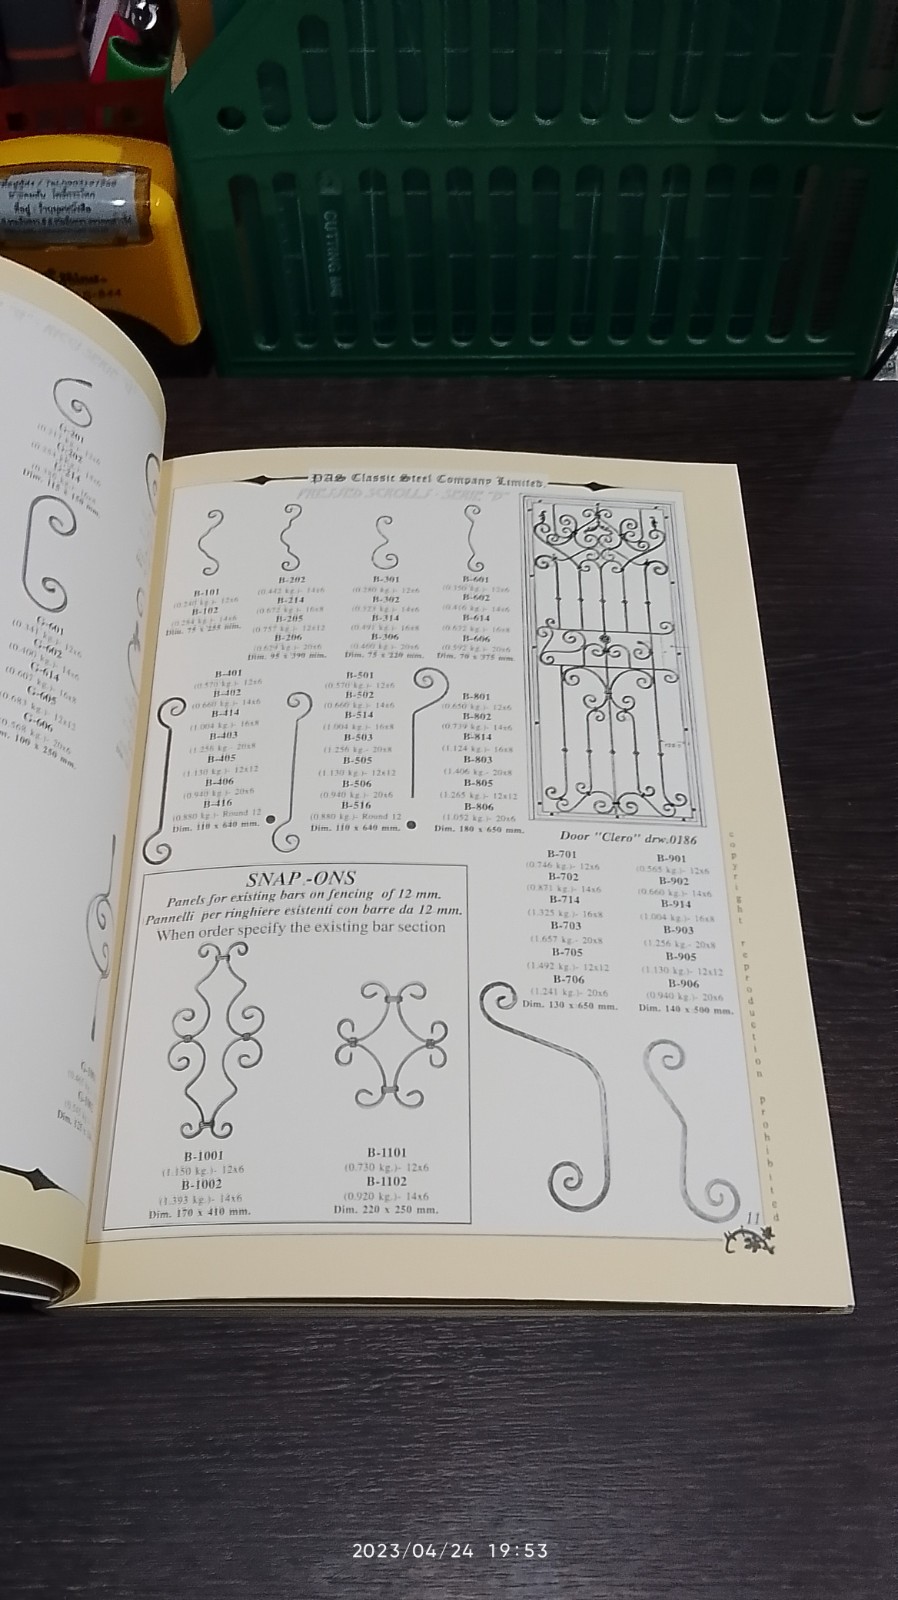 CUTTING
PAS Classic Steel Company Limited
PRESSED SCROLLS - SERIE "B"
B-101
(0.240 kg.)- 12x6
B-102
(0.294 kg.)- 14x6
Dim. 75 x 255 mm.
B-202
(0.442 kg.)- 14x6
B-214
(0.672 kg.)- 16x8
B-205
(0.757 kg.)- 12x12
B-206
(0.629 kg.)- 20x6
Dim. 95 x 390 mm.
B-301
(0.280 kg.)- 12x6
B-302
(0.325 kg.)- 14x6
B-314
(0.491 kg.)- 16x8
B-306
(0.460 kg.)- 20x6
Dim. 75 x 220 mm.
B-601
(0.350 kg.)- 12x6
B-602
(0.416 kg.)- 14x6
B-614
(0.632 kg.)- 16x8
B-606
(0.592 kg.)- 20x6
Dim. 70 x 375 mm.
B-401
(0.570 kg.)- 12x6
B-402
(0.660 kg.)- 14x6
B-414
(1.004 kg.)- 16x8
B-403
(1.256 kg.- 20x8
B-405
(1.130 kg.)- 12x12
B-406
(0.940 kg.)- 20x6
B-416
(0.880 kg.)- Round 12
Dim. 110 x 640 mm.
B-501
(0.570 kg.)- 12x6
B-502
(0.660 kg.)- 14x6
B-514
(1.004 kg.)- 16x8
B-503
(1.256 kg.- 20x8
B-505
(1.130 kg.)- 12x12
B-506
(0.940 kg.)- 20x6
B-516
(0.880 kg.)- Round 12
Dim. 110 x 640 mm.
B-801
(0.650 kg.)- 12x6
B-802
(0.739 kg.)- 14x6
B-814
(1.124 kg.)- 16x8
B-803
(1.406 kg.- 20x8
B-805
(1.265 kg.)- 12x12
B-806
(1.052 kg.)- 20x6
Dim. 180 x 650 mm.
Door "Clero" drw.0186
B-701
(0.746 kg.)- 12x6
B-702
(0.871 kg.)- 14x6
B-714
(1.325 kg.)- 16x8
B-703
(1.657 kg.)- 20x8
B-705
(1.492 kg.)- 12x12
B-706
(1.241 kg.)- 20x6
Dim. 130 x 650 mm.
B-901
(0.565 kg.)- 12x6
B-902
(0.660 kg.)- 14x6
B-914
(1.004 kg.)- 16x8
B-903
(1.256 kg.)- 20x8
B-905
(1.130 kg.)- 12x12
B-906
(0.940 kg.)- 20x6
Dim. 140 x 500 mm.
SNAP-ONS
Panels for existing bars on fencing of 12 mm.
Pannelli per ringhiere esistenti con barre da 12 mm.
When order specify the existing bar section
B-1001
(1.150 kg.)- 12x6
B-1002
(1.393 kg.)- 14x6
Dim. 170 x 410 mm.
B-1101
(0.730 kg.)- 12x6
B-1102
(0.920 kg.)- 14x6
Dim. 220 x 250 mm.
copyright reproduction prohibited
11
G-201
G-202
G-214
G-601
G-602
G-614
G-605
G-606
2023/04/24 19:53